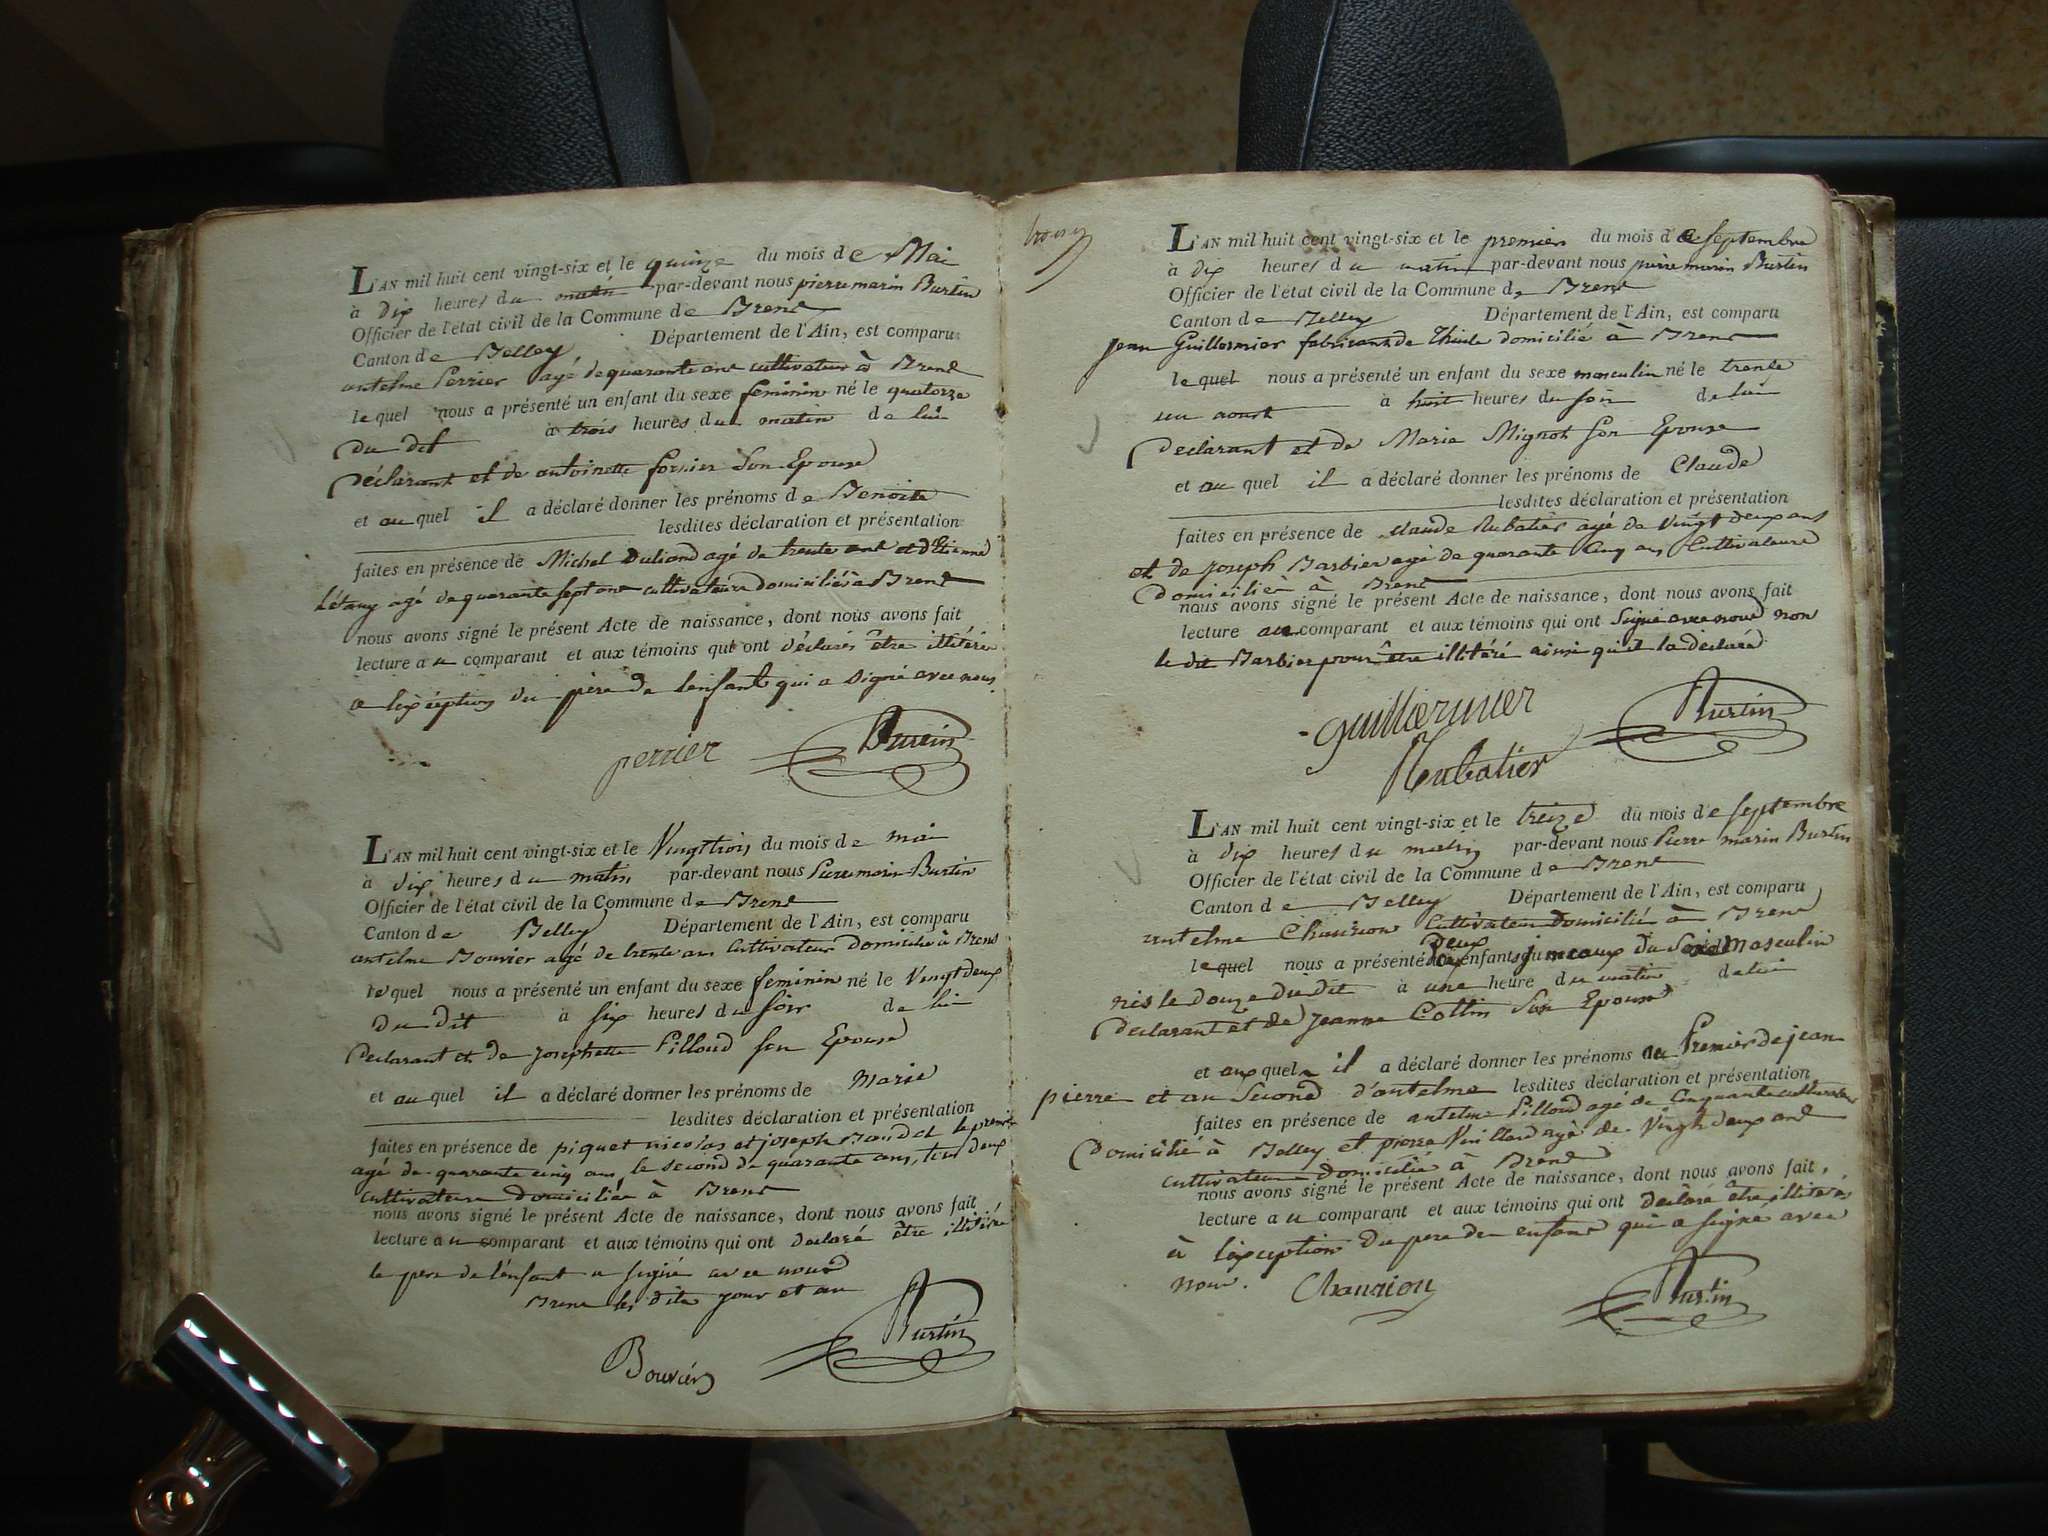 L'AN mil huit cent vingt-six et le quinze du mois de Mai
à dix heures du matin par-devant nous pierre marin Burtin
Officier de l'état civil de la Commune de Brens
Canton de Belley Département de l'Ain, est comparu
antelme Perrier agé de quarante ans cultivateur à Brens
le quel nous a présenté un enfant du sexe feminin né le quatorze
du dit à trois heures du matin de lui
Déclarant et de antoinette fornier Son Epouse
et au quel il a déclaré donner les prénoms de Benoite
lesdites déclaration et présentation
faites en présence de Michel Duliand agé de trente ans et d'Etienne
Létang agé de quarante sept ans cultivateurs domiciliés à Brens
nous avons signé le présent Acte de naissance, dont nous avons fait
lecture au comparant et aux témoins qui ont déclarés être illitérés
a l'exéption du père de l'enfant qui a signé avec nous.
perrier Burtin
L'AN mil huit cent vingt-six et le Vingttrois du mois de mai
à dix heures du matin par-devant nous Pierre marin Burtin
Officier de l'état civil de la Commune de Brens
Canton de Belley Département de l'Ain, est comparu
antelme Bouvier agé de trente ans Cultivateur Domicilié à Brens
le quel nous a présenté un enfant du sexe feminin né le Vingt deux
du dit à six heures du soir de lui
Declarant et de Josephette Pilloud son Epouse
et au quel il a déclaré donner les prénoms de Marie
lesdites déclaration et présentation
faites en présence de piquet nicolas et joseph le premier
agé de quarante cinq ans, le second de quarante ans, tous deux
cultivateurs Domiciliés à Brens
nous avons signé le présent Acte de naissance, dont nous avons fait
lecture au comparant et aux témoins qui ont déclaré être illitéré
le pere de l'enfant a signé avec nous
Brens les dits jour et an
Bouvier Burtin
L'AN mil huit cent vingt-six et le premier du mois de septembre
à dix heures du matin par-devant nous pierre marin Burtin
Officier de l'état civil de la Commune de Brens
Canton de Belley Département de l'Ain, est comparu
Jean Guillermier fabricant de Thuile domicilié à Brens
le quel nous a présenté un enfant du sexe masculin né le trente
un aoust à huit heures du soir de lui
Declarant et de Marie Mignot son Epouse
et au quel il a déclaré donner les prénoms de Claude
lesdites déclaration et présentation
faites en présence de Claude Rubatier agé de vingt deux ans
et de joseph Barbier agé de quarante cinq ans Cultivateurs
Domiciliés à Brens
nous avons signé le présent Acte de naissance, dont nous avons fait
lecture au comparant et aux témoins qui ont Signé avec nous non
le dit Barbier pour être illitéré ainsi qu'il la déclaré
guillermier Burtin
Rubatier
L'AN mil huit cent vingt-six et le treize du mois de septembre
à dix heures du matin par-devant nous Pierre marin Burtin
Officier de l'état civil de la Commune de Brens
Canton de Belley Département de l'Ain, est comparu
antelme Chaurion Cultivateur Domicilié à Brens
le quel nous a présenté Deux enfants jumeaux du Sexe Masculin
nés le Douze du dit à une heure du matin de lui
Declarant et de Jeanne Cottin Son Epouse
et aux quels il a déclaré donner les prénoms au Premier de jean
pierre et au Second d'antelme lesdites déclaration et présentation
faites en présence de antelme Pilloud agé de Cinquante cultivateur
Domicilié à Belley et pierre Vuillerd agé de Vingt deux ans
cultivateur Domicilié à Brens
nous avons signé le présent Acte de naissance, dont nous avons fait,
lecture au comparant et aux témoins qui ont declaré être illitérés
à l'exception du pere des enfans qui a signé avec
nous. Chaurion Burtin